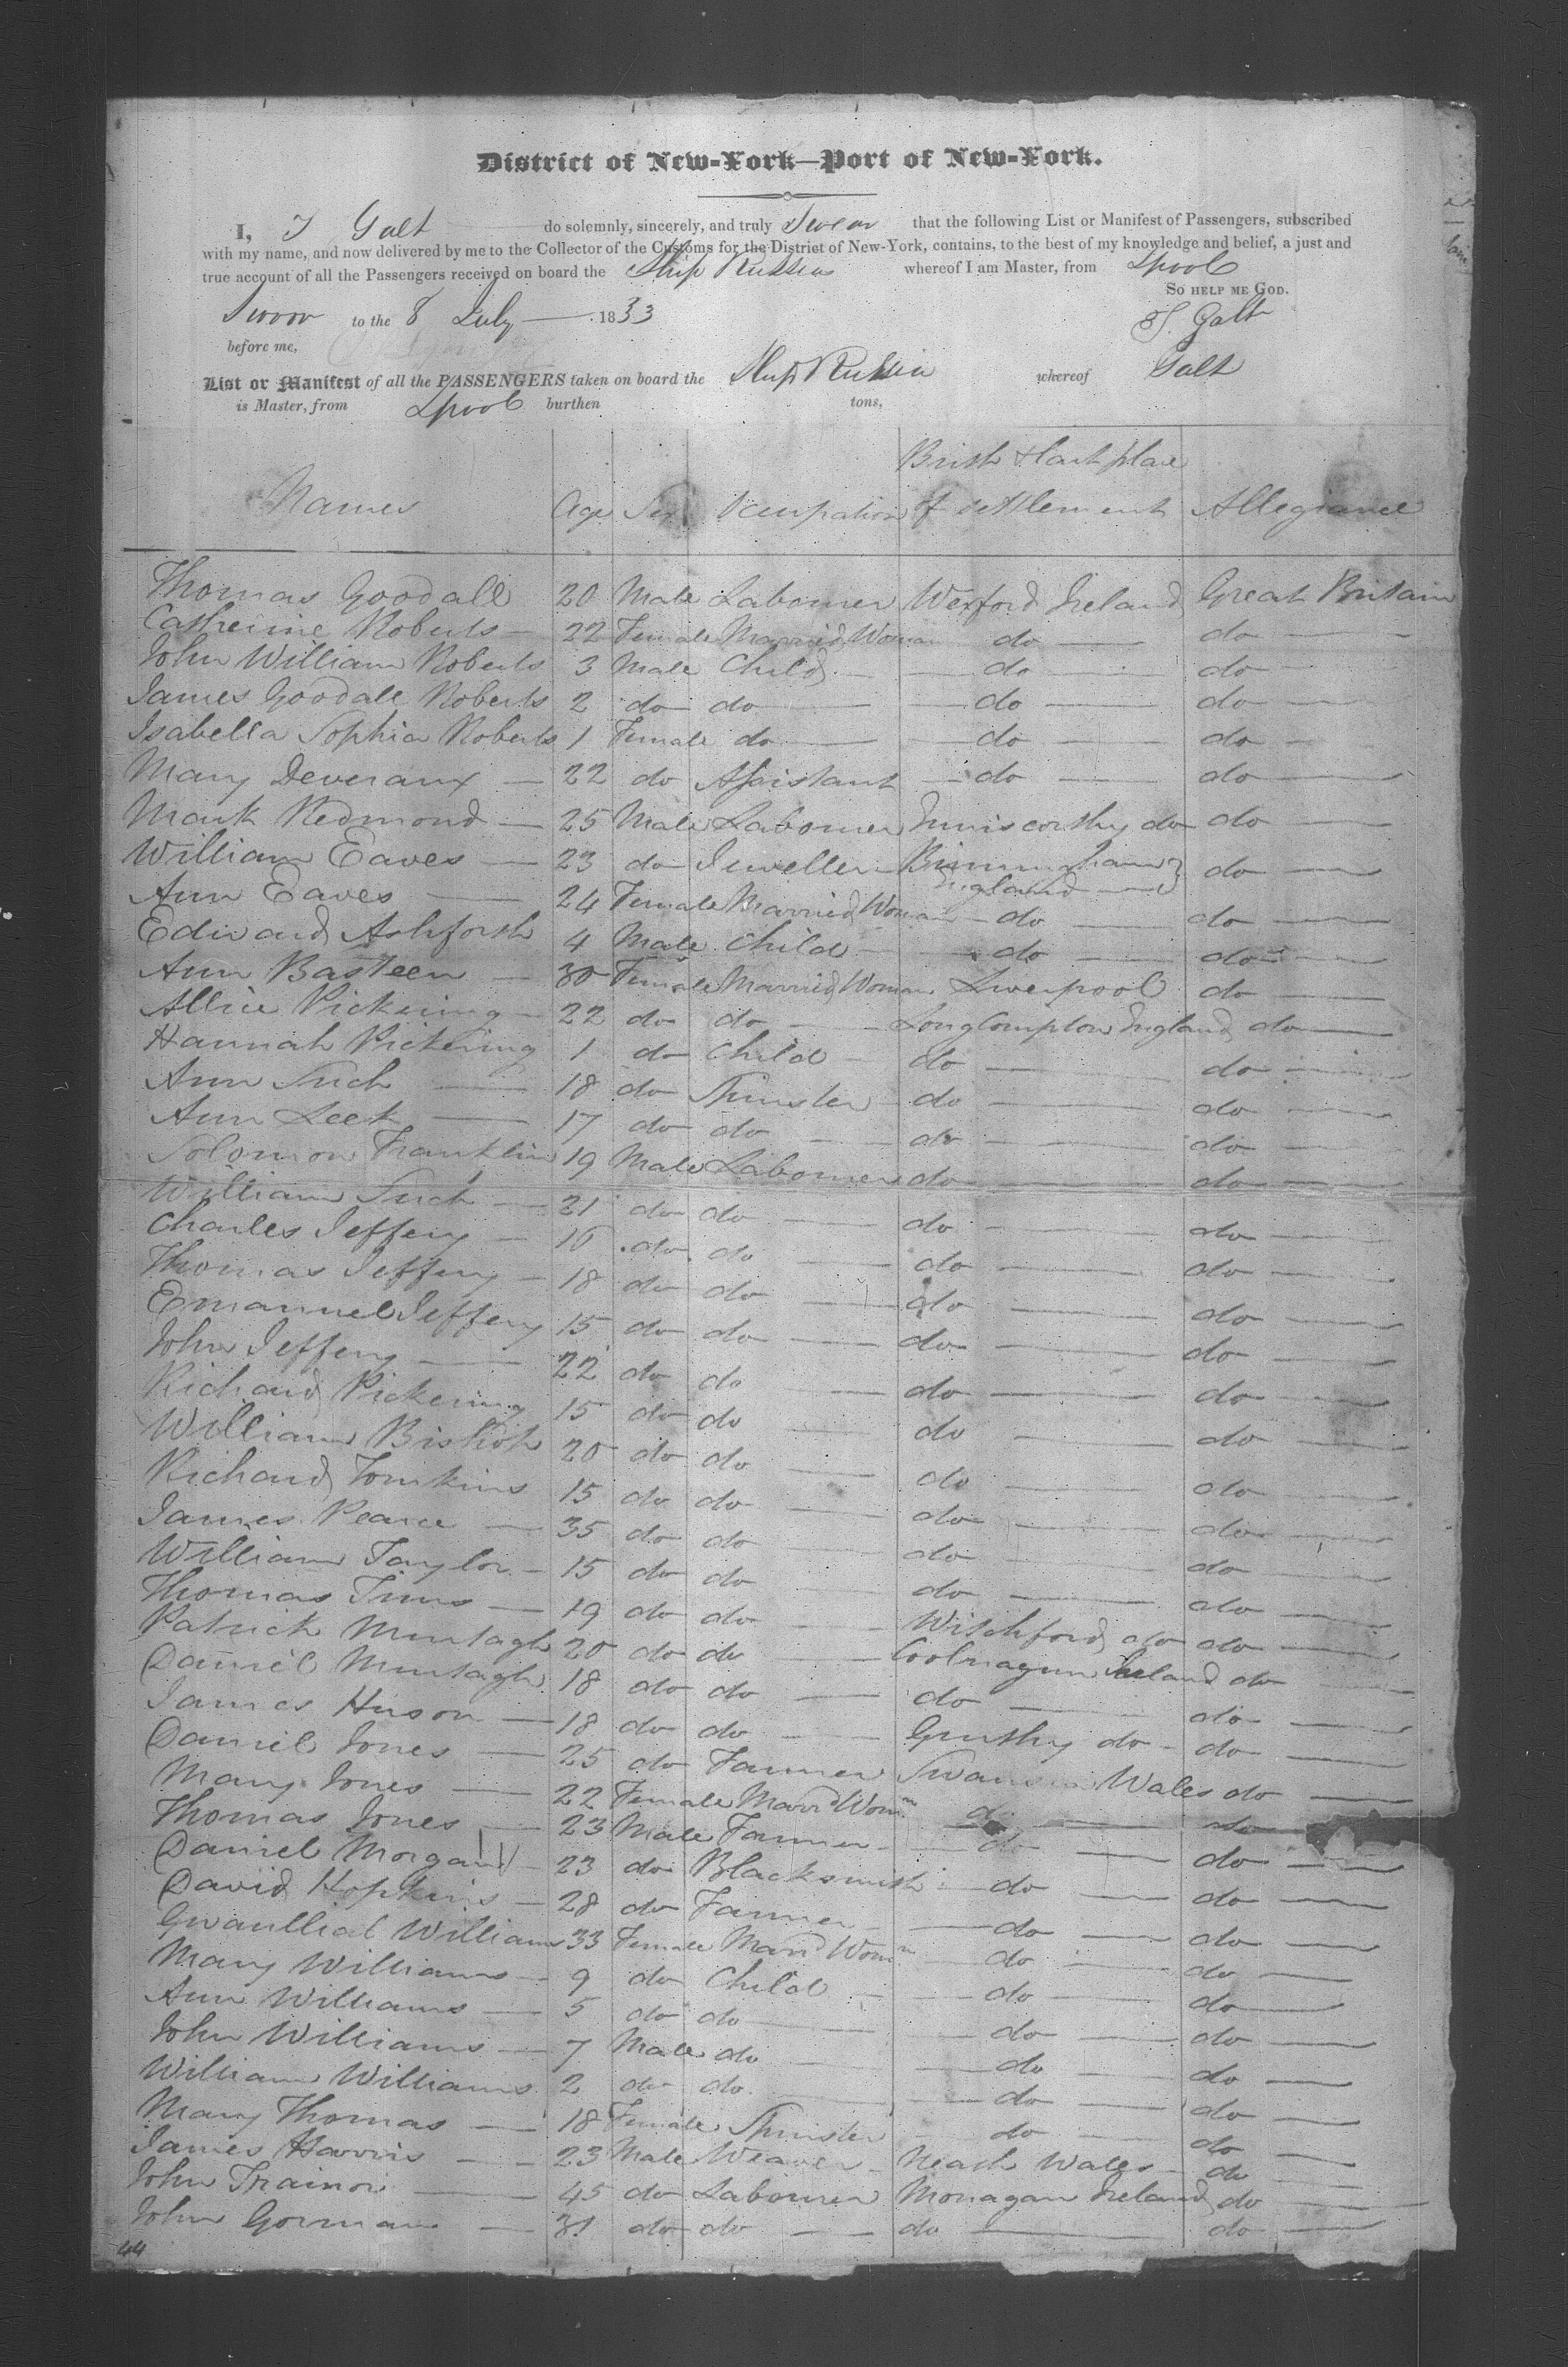 District of New-York—Port of New-York.
I, J Galt do solemnly, sincerely, and truly Swear that the following List or Manifest of Passengers, subscribed
with my name, and now delivered by me to the Collector of the Customs for the District of New-York, contains, to the best of my knowledge and belief, a just and
true account of all the Passengers received on board the Ship Russia whereof I am Master, from Lpool
So help me God.
Sworn to the 8 July 1833
J. Galt
before me,
List or Manifest of all the PASSENGERS taken on board the Ship Russia whereof Galt
is Master, from Lpool burthen tons,
Names Age Sex Occupation Birth & last place of settlement Allegiance
Thomas Goodall 20 Male Labourer Wexford Ireland Great Britain
Catherine Roberts 22 Female Married Woman do do
John William Roberts 3 Male Child do do
James Goodall Roberts 2 do do do do
Isabella Sophia Roberts 1 Female do do do
Mary Deveraux 22 do Assistant do do
Mark Redmond 25 Male Labourer Enniscorthy do do
William Eaves 23 do Jeweller Birmingham England do
Ann Eaves 24 Female Married Woman do do
Edward Ashforth 4 Male Child do do
Ann Basteen 30 Female Married Woman Liverpool do
Allice Pickering 22 do do Long Compton England do
Hannah Pickering 1 do Child do do
Ann Such 18 do Spinster do do
Ann Leek 17 do do do do
Solomon Franklin 19 Male Labourer do do
William Such 21 do do do do
Charles Jeffery 16 do do do do
Thomas Jeffery 18 do do do do
Emanuel Jeffery 15 do do do do
John Jeffery 22 do do do do
Richard Pickering 15 do do do do
William Bishop 20 do do do do
Richard Tomkins 15 do do do do
James Pearce 35 do do do do
William Taylor 15 do do do do
Thomas Tims 19 do do Witchford do do
Patrick Murtagh 20 do do Ireland do
Daniel Murtagh 18 do do do do
James Huson 18 do do do do
Daniel Jones 25 do Farmer Swansea Wales do
Mary Jones 22 Female Marrd Womn do do
Thomas Jones 23 Male Farmer do do
Daniel Morgan 23 do Blacksmith do do
David Hopkins 28 do Farmer do do
Gwaulliat Williams 33 Female Marrd Womn do do
Mary Williams 9 do Child do do
Ann Williams 5 do do do do
John Williams 7 Male do do do
William Williams 2 do do do do
Mary Thomas 18 Female Spinster do do
James Harris 23 Male Weaver Neath Wales do
John Trainor 45 do Labourer Monagan Ireland do
John Gorman 31 do do do do
44